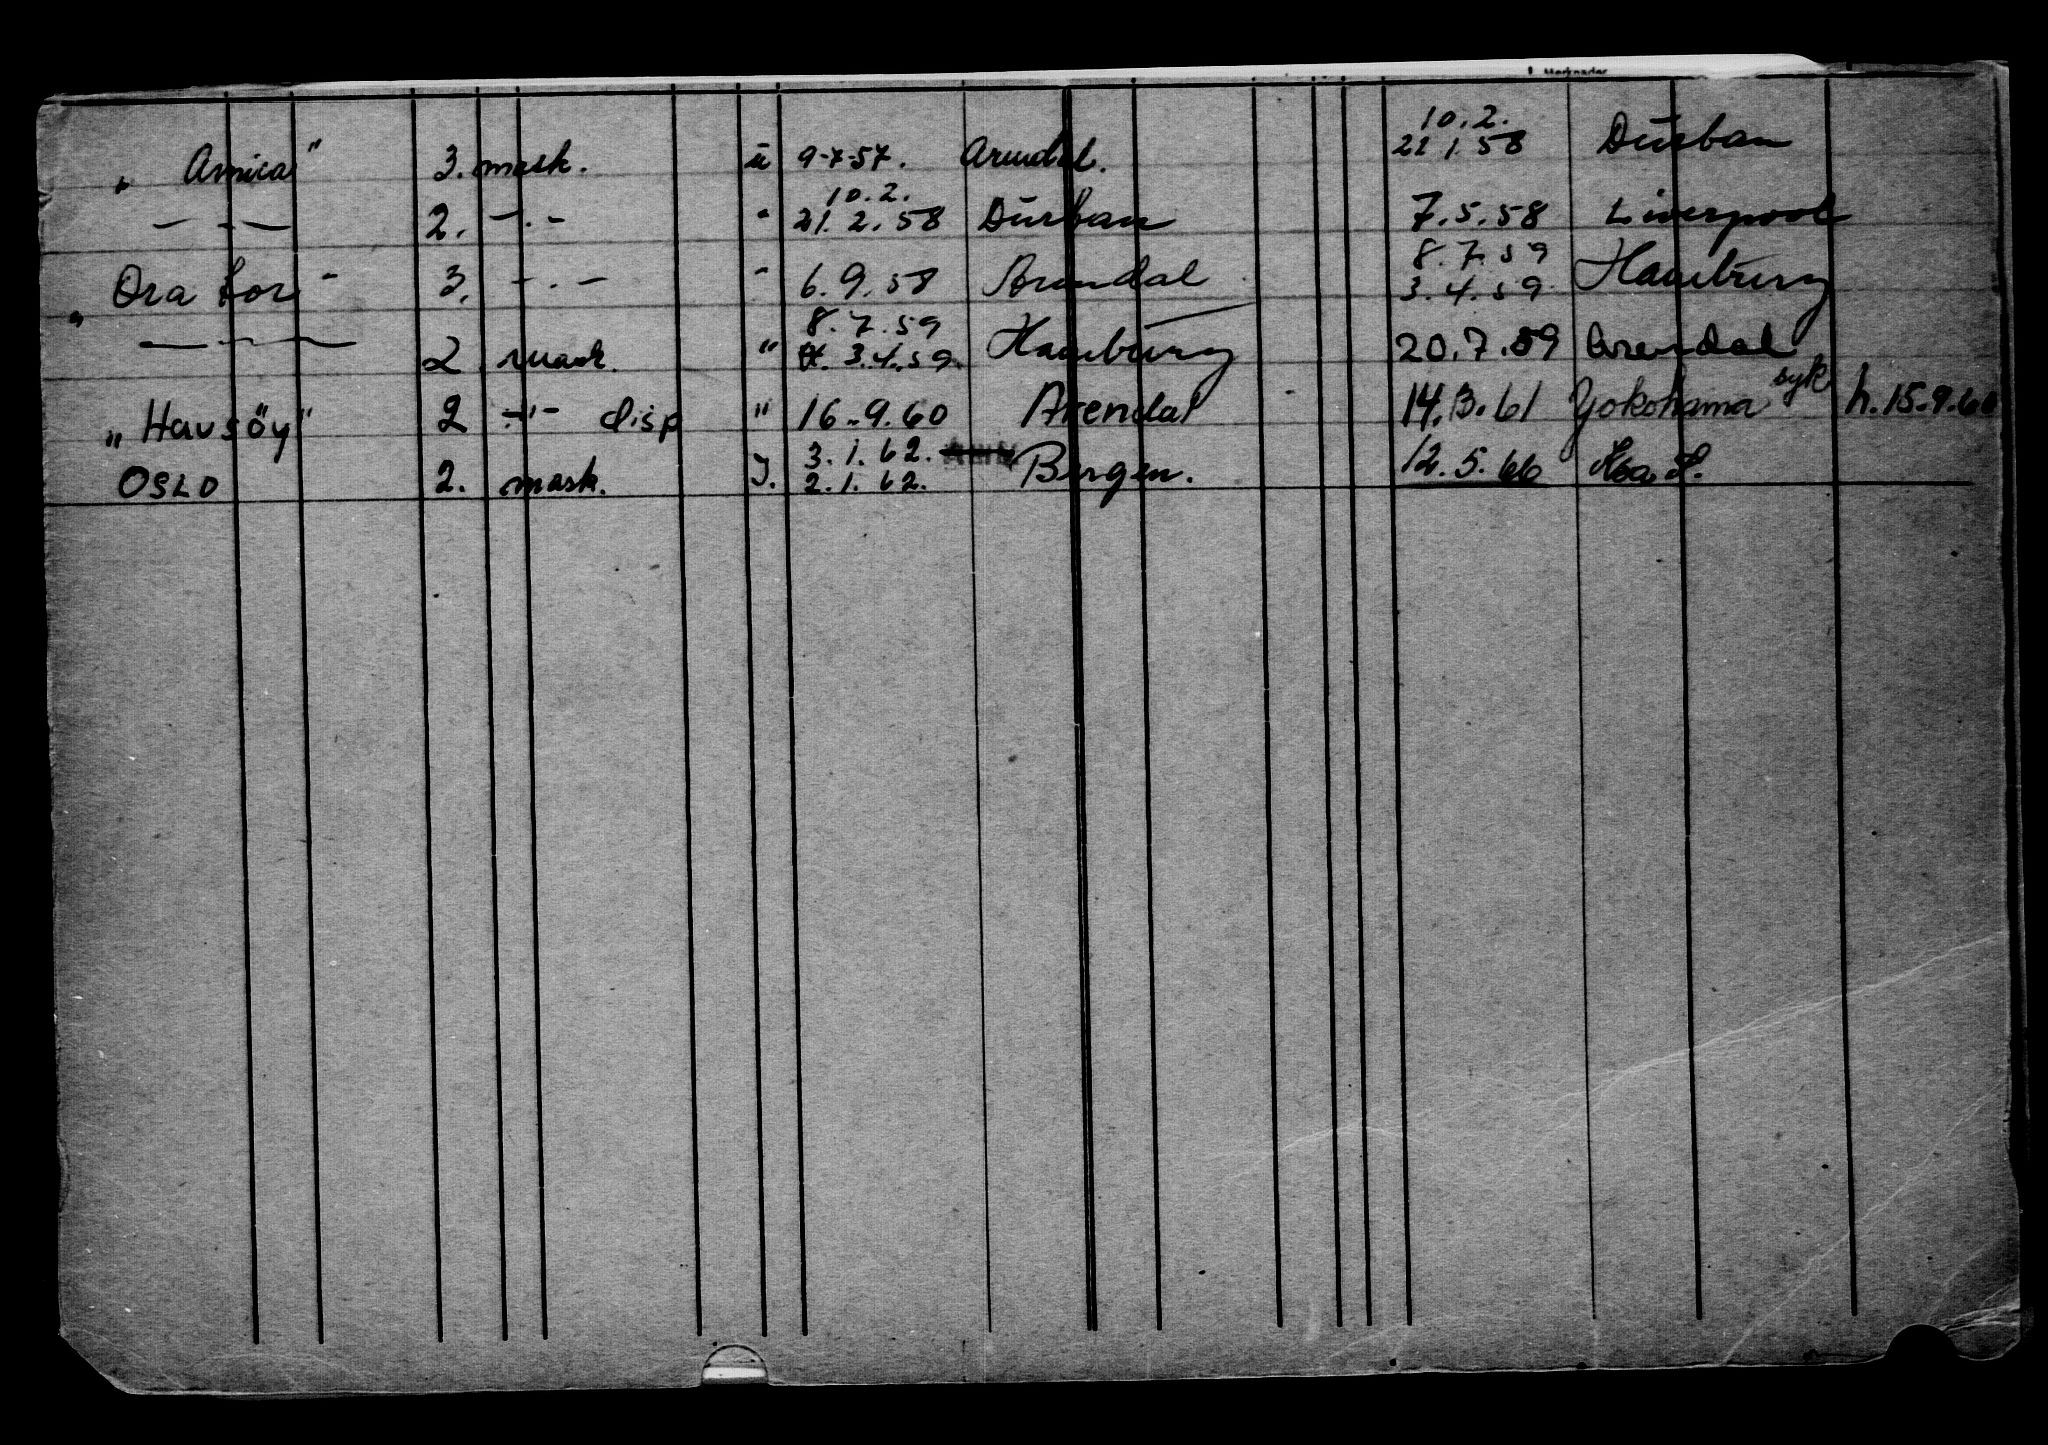 Merknader
10.2.
„ Arnica" 3. mask. ü 9-7-57. Arendal. 21 1.58 Durban
10.2.
— - — 2. — . - " 21.2.58 Durban 7.5.58 Liverpool
8.7.59
„ Ora Lor " 3. — . — " 6.9.58 Arendal 3.4.59 Hamburg
8.7.59
— " — 2 mask. " 3.4.59 Hamburg 20.7.59 Arendal
„ Havsöy" 2 -"- disp " 16.9.60 Arendal 14.3.61 Yokohama syk h. 15.9.60
3.1.62.
OSLO 2. mask. 2.1.62. Bergen. 12.5.66